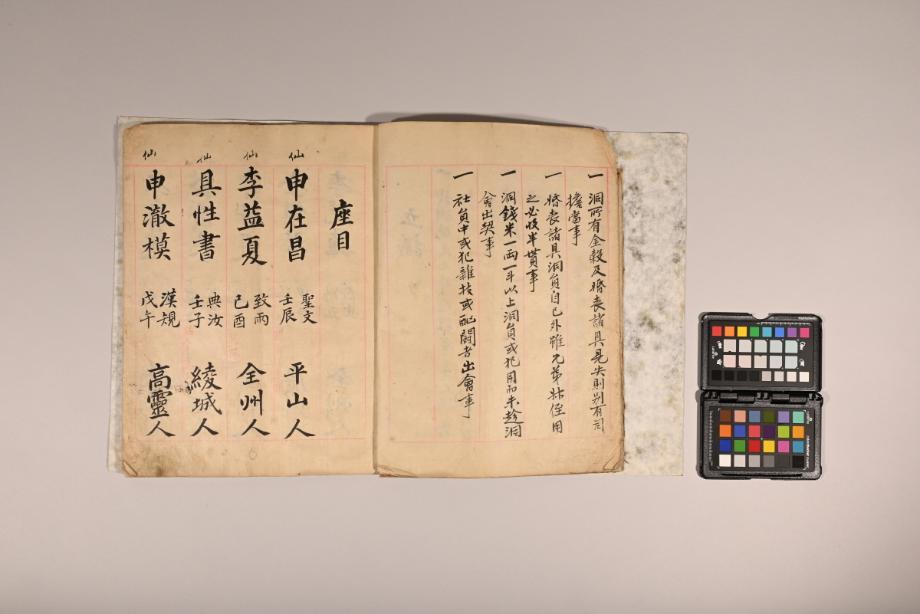 一 洞所有金穀及婚喪諸具見失則別有司
擔當事
一 婚喪諸具洞員自己外雖兄弟叔侄用
之必收半貰事
一 洞錢米一兩一斗以上洞員或犯用和未趁洞
會出契事
一 社員中或犯雜技或酗鬪者出會事
座目
仙 申在昌 聖文 壬辰 平山人
仙 李益夏 致雨 己酉 全州人
仙 具性書 典汝 壬子 綾城人
仙 申澈模 漢規 戊午 高靈人